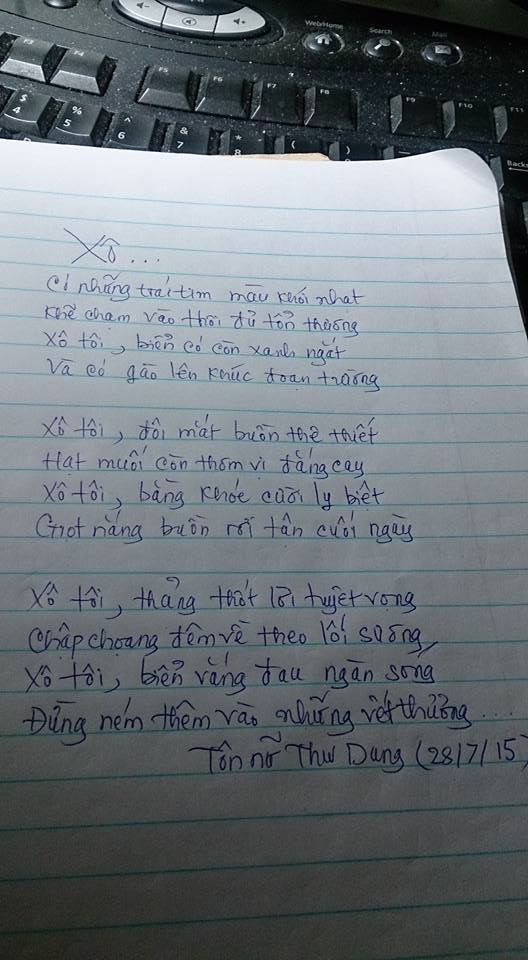 Web/Home Search Mail
F3 F4 F5 F6 F7 F8 F9 F10 F11
$ 4 % 5 ^ 6 & 7 * 8 ( )
Backs
Xô...
Có những trái tim màu khói nhạt
Khẽ chạm vào thôi đủ tổn thương
Xô tôi, biển có còn xanh ngắt
Và có gào lên khúc đoạn trường
Xô tôi, đôi mắt buồn thê thiết
Hạt muối còn thơm vị đắng cay
Xô tôi, bằng khóe cười ly biệt
Giọt nắng buồn rơi tận cuối ngày
Xô tôi, thảng thốt lời tuyệt vọng
Chập choạng đêm về theo lối sương
Xô tôi, biển vắng đau ngàn sóng
Đừng ném thêm vào những vết thương...
Tôn nữ Thu Dung (28/7/15)